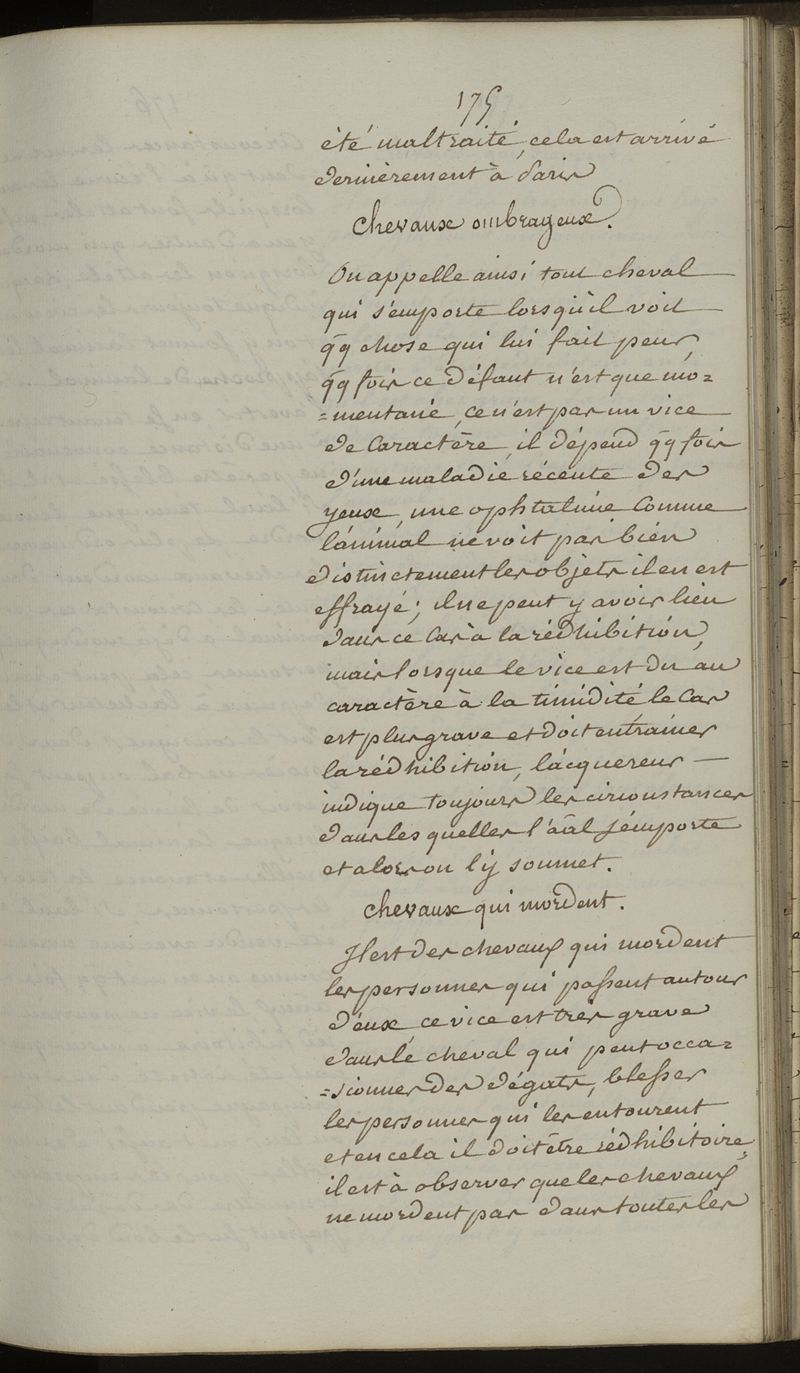 175
été maltraité, cela est arrivé
dernièrement à Paris
chevaux ombrageux.
On appelle ainsi tout cheval
qui s'emporte lorsqu'il voit
qq chose qui lui fait peur,
qq fois ce défaut n'est que mo=
=mentané, ce n'est pas un vice
de caractère, il dépend qq fois
d'une maladie récente des
yeux, une ophtalmie comme
l'animal ne voit pas bien
distinctement les objets il en est
effrayé; il ne peut y avoir lieu
dans ce cas à la rédhibition,
mais lorsque le vice est du au
caractère à la timidité le cas
est plus grave et doit entrainer
la rédhibition, l'acquereur
indique toujours les circonstances
dans les quelles l'aal s'emporte
et alors on l'y soumet.
chevaux qui mordent.
Il est des chevaux qui mordent
les personnes qui passent autour
d'eux ce vice est très grave
dans le cheval qui peut occa=
=sionner des dégats, blesser
les personnes qui les entourent
et en cela il doit être rédhibitoire,
il est à observer que les chevaux
ne mordent pas dans toutes les